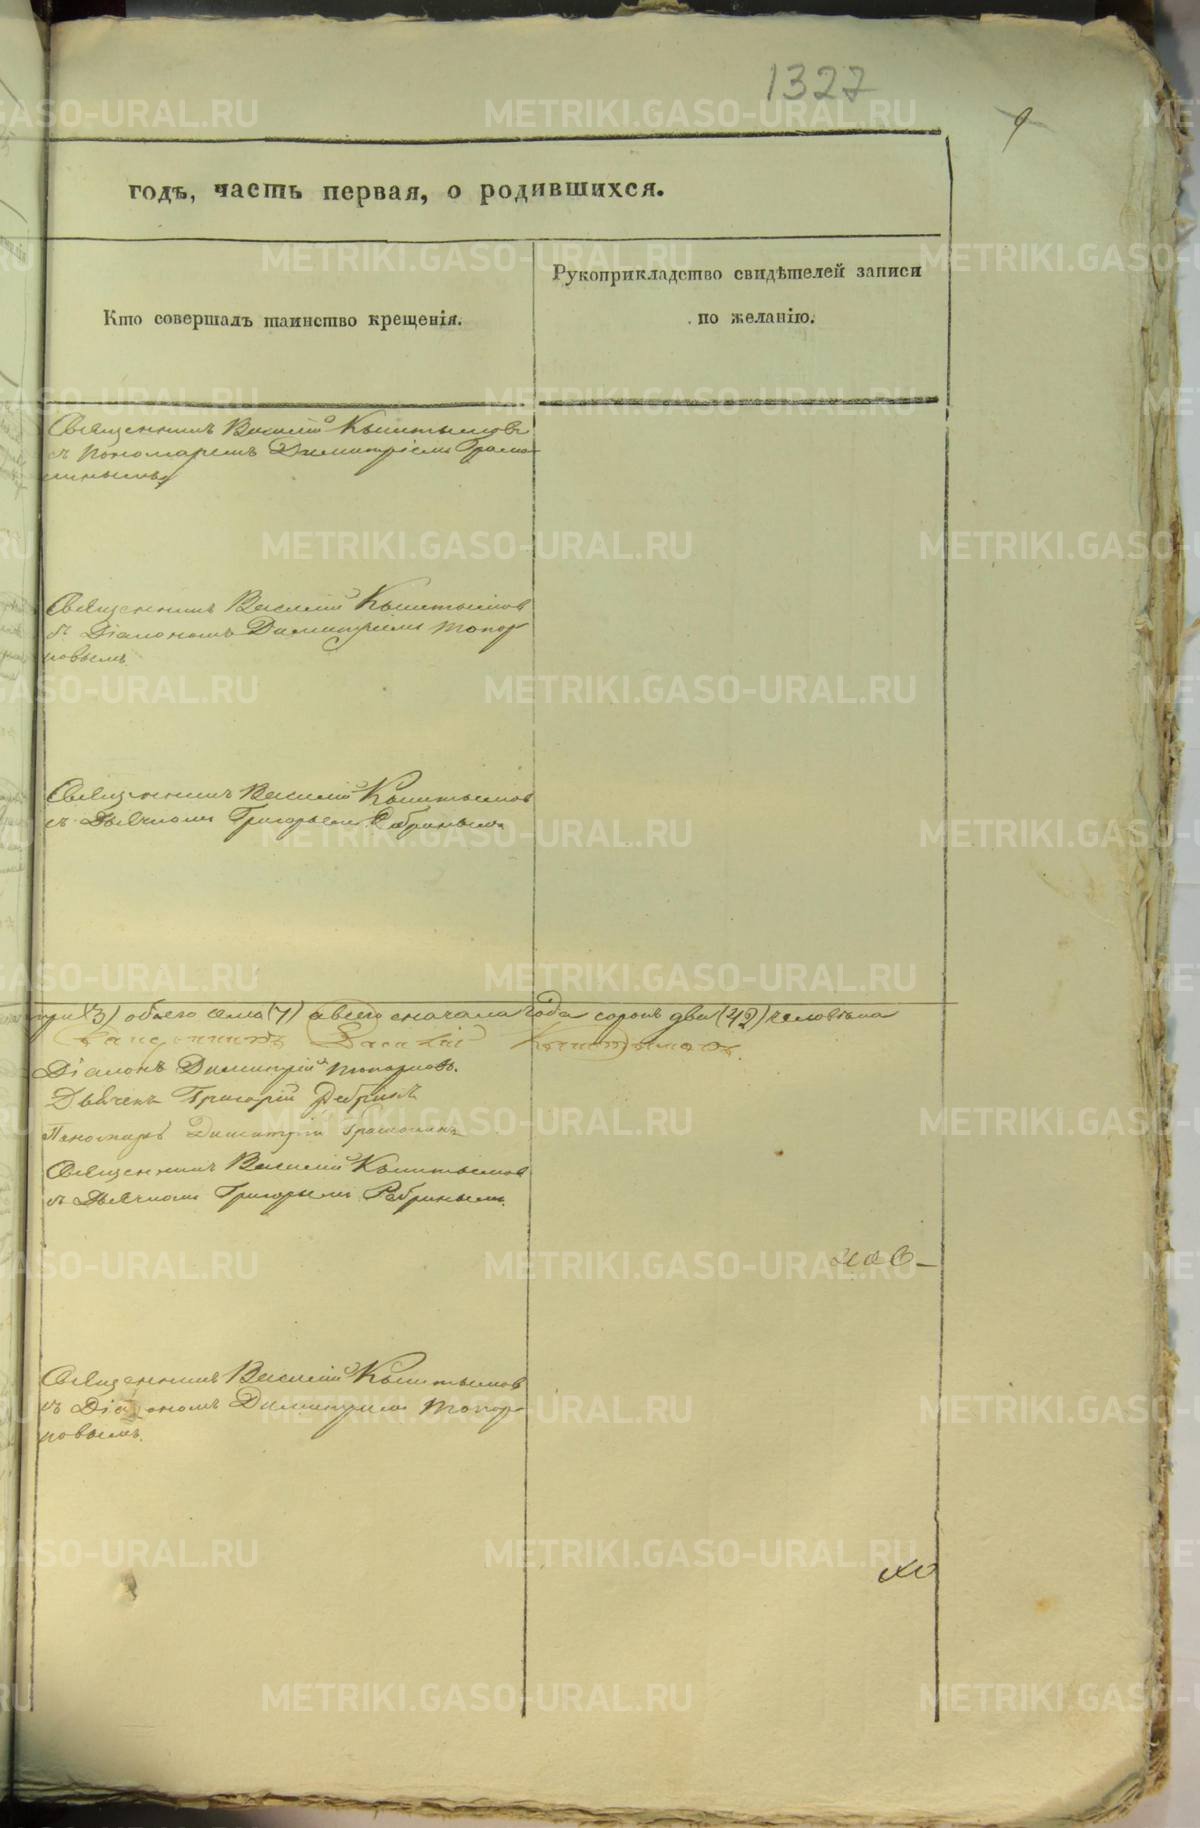 1327
9
годѣ, часть первая, о родившихся.
Кто совершалъ таинство крещенія.
Рукоприкладство свидѣтелей записи
по желанію.
Священникъ Василій Кыштымовъ
съ пономаремъ Димитріемъ
Священникъ Василій Кыштымовъ
съ Діакономъ Димитріемъ Топор
ковымъ.
Священникъ Василій Кыштымовъ
съ Дьячкомъ Григорьемъ Ребринымъ
три (3) обоего семь (7) а всего сначала года сорокъ два (42) человѣка
Священникъ Василій Кыштымовъ.
Діаконъ Димитрій Топорковъ.
Дьячекъ Григорій Ребринъ
Пономарь Димитрій
Священникъ Василій Кыштымовъ
съ Дьячкомъ Григорьемъ Ребринымъ.
Священникъ Василій Кыштымовъ
съ Діакономъ Димитріемъ Топор
ковымъ.
METRIKI.GASO-URAL.RU